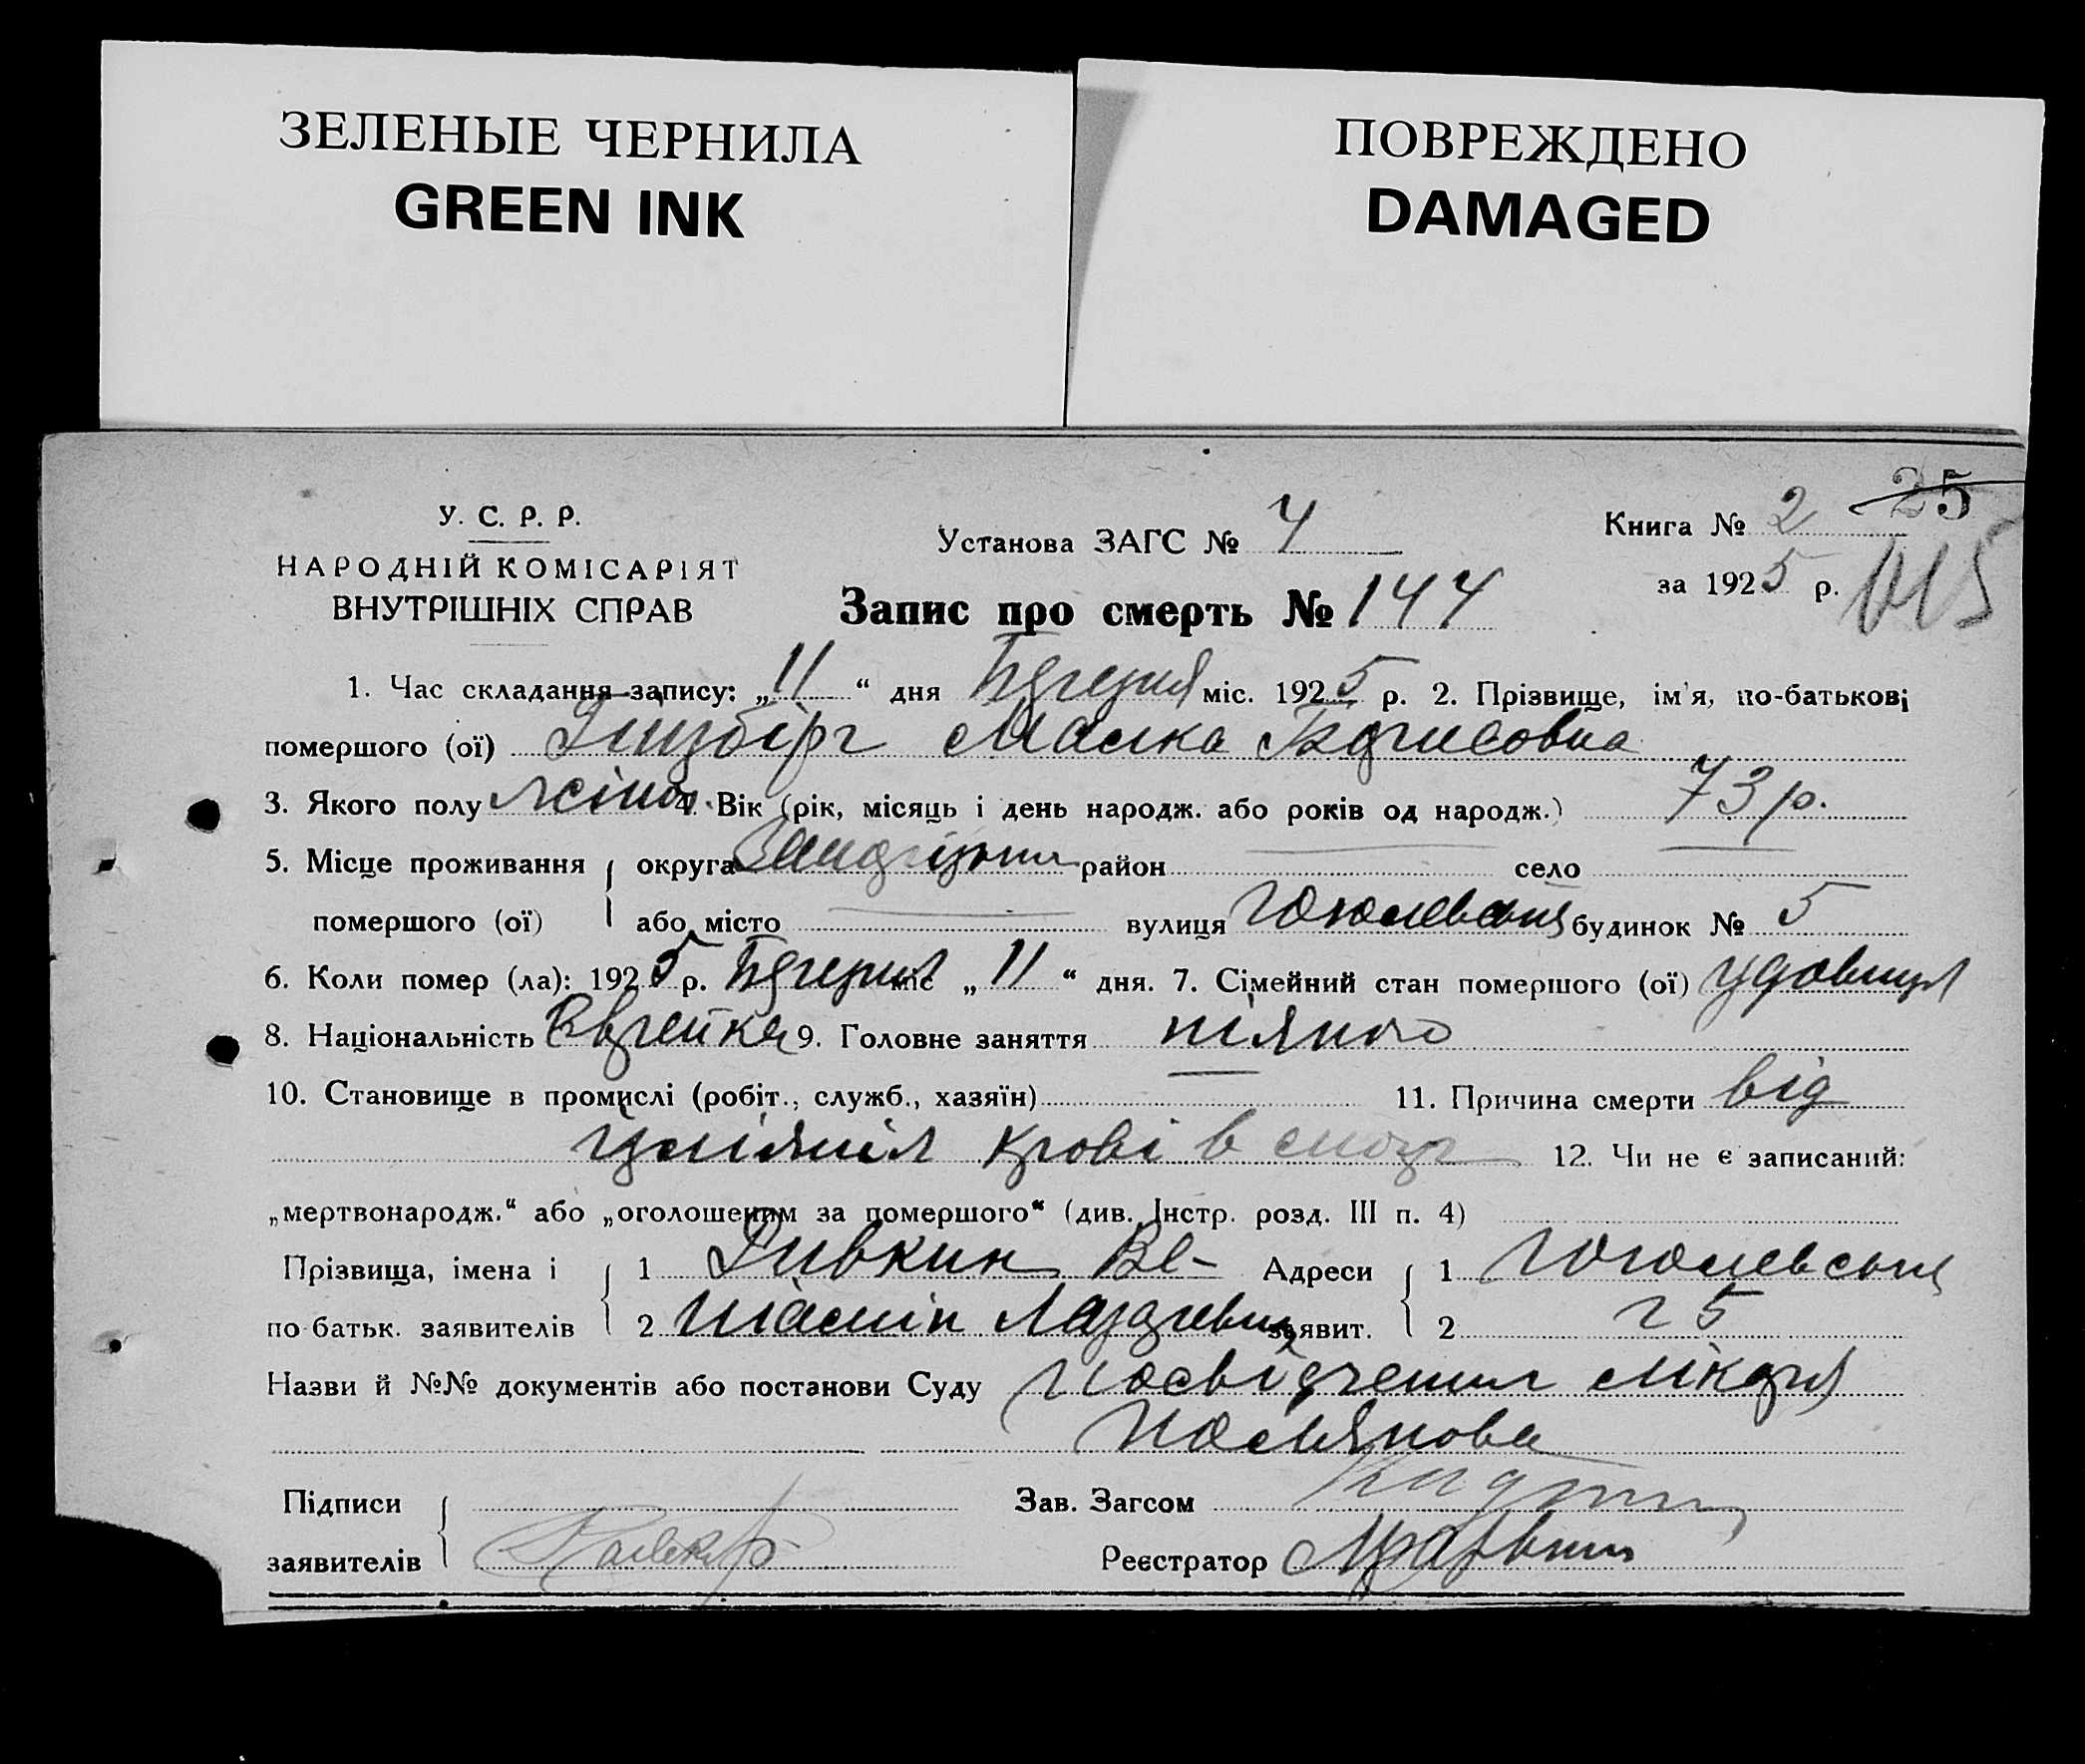 ЗЕЛЕНЫЕ ЧЕРНИЛА
GREEN INK
ПОВРЕЖДЕНО
DAMAGED
25
У. С. Р. Р.
НАРОДНІЙ КОМІСАРІЯТ
ВНУТРІШНІХ СПРАВ
Установа ЗАГС № 4
Книга № 2
за 1925 р.
Запис про смерть № 144
1. Час складання запису: „11“ дня міс. 1925 р. 2. Прізвище, ім'я, по-батькові
помершого (ої) Гінзбірг Малка Борисовна
3. Якого полу жіноч. 4. Вік (рік, місяць і день народж. або років од народж.) 73 р.
5. Місце проживання округа район село
помершого (ої) або місто вулиця Гоголевська будинок № 5
6. Коли помер (ла): 1925 р. міс „11“ дня. 7. Сімейний стан помершого (ої) удовиця
8. Національність Єврейка 9. Головне заняття
10. Становище в промислі (робіт., служб., хазяїн) 11. Причина смерти від
крові в 12. Чи не є записаний:
„мертвонародж.“ або „оголошеним за помершого“ (див. Інстр. розд. III п. 4)
Прізвища, імена і 1 Ривкин Ве- Адреси 1 Гоголевська
по-батьк. заявителів 2 ніамін Лазаревич заявит. 2 5
Назви й №№ документів або постанови Суду Посвідчення лікаря
Підписи Зав. Загсом
заявителів Реєстратор